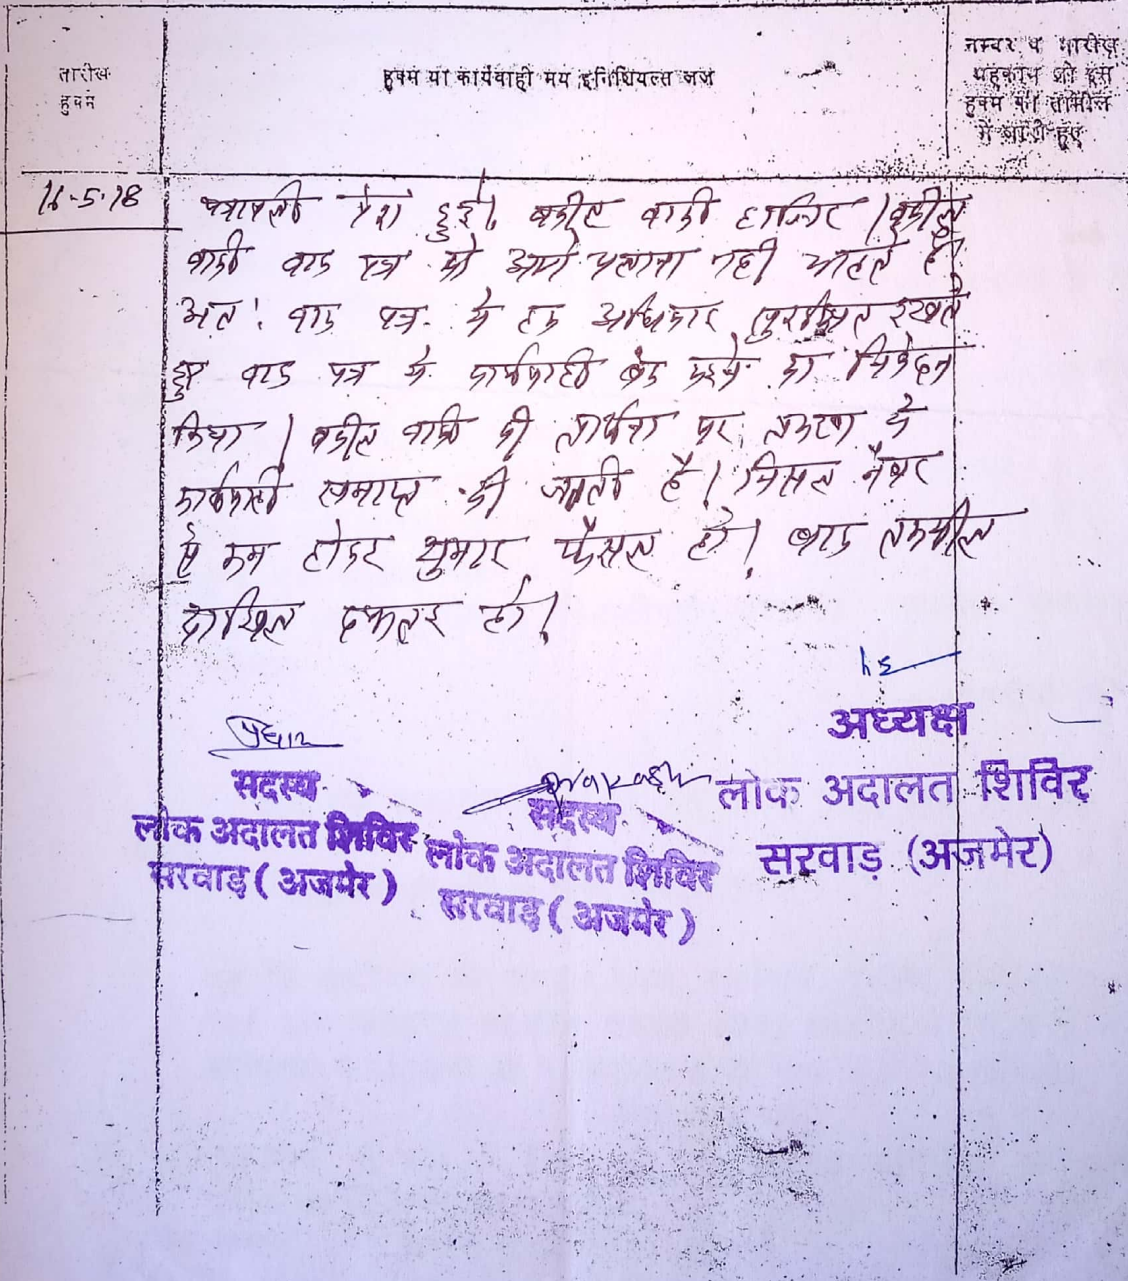 तारीख
हुक्म
हुक्म या कार्यवाही मय इनिशियल्स जज
नम्बर व तारीख
अहकाम जो इस
हुक्म की तामील
में जारी हुए
16-5-18
पत्रावली पेश हुई। वकील वादी हाजिर। वकील
वादी वाद पत्र को आगे चलाना नही चाहते है।
अतः वाद पत्र के हक अधिकार सुरक्षित रखते
हुए वाद पत्र के कार्यवाही बंद करने का निवेदन
किया। वकील वादी की प्रार्थना पर प्रकरण में
कार्यवाही समाप्त की जाती है। मिसल नम्बर
से कम होकर शुमार फैसल हो। बाद तकमील
दाखिल दफतर हो।
अध्यक्ष
लोक अदालत शिविर
सरवाड़ (अजमेर)
सदस्य
लोक अदालत शिविर
सरवाड़ (अजमेर)
सदस्य
लोक अदालत शिविर
सरवाड़ (अजमेर)